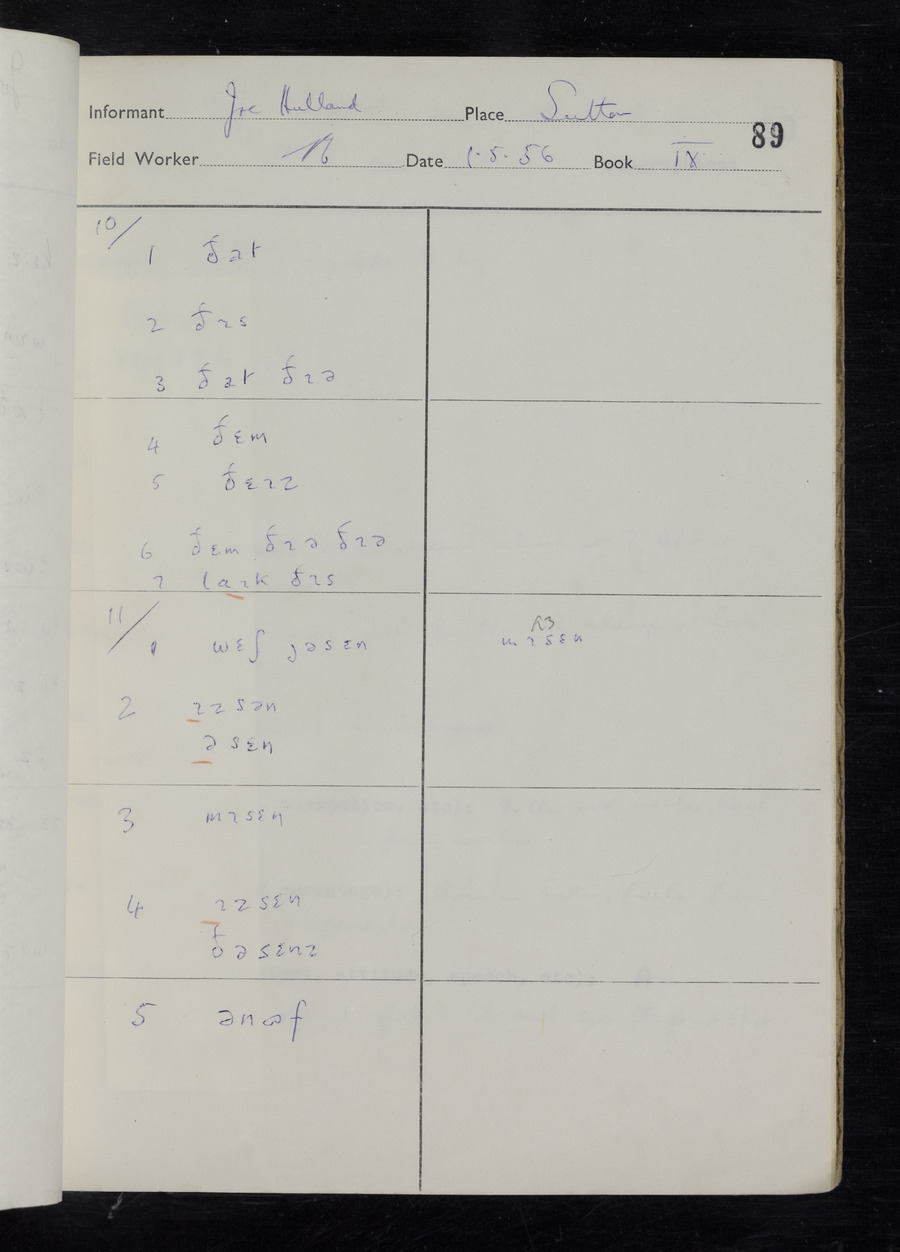 Informant Joe Hulland Place Sutton
89
Field Worker Date 1.5.56 Book IX
10/
1 ðat
2 ðɪs
3 ðat ðɪə
4 ðɛm
5 ðɛɪz
6 ðɛm ðɪə ðɪə
7 laɪk ðɪs
11/
1 wɛʃ jəsɛn
R3
mɪsɛn
2 ɪzsən
əsɛn
3 mɪsɛn
4 ɪzsɛn
ðəsɛnz
5 ənɷf